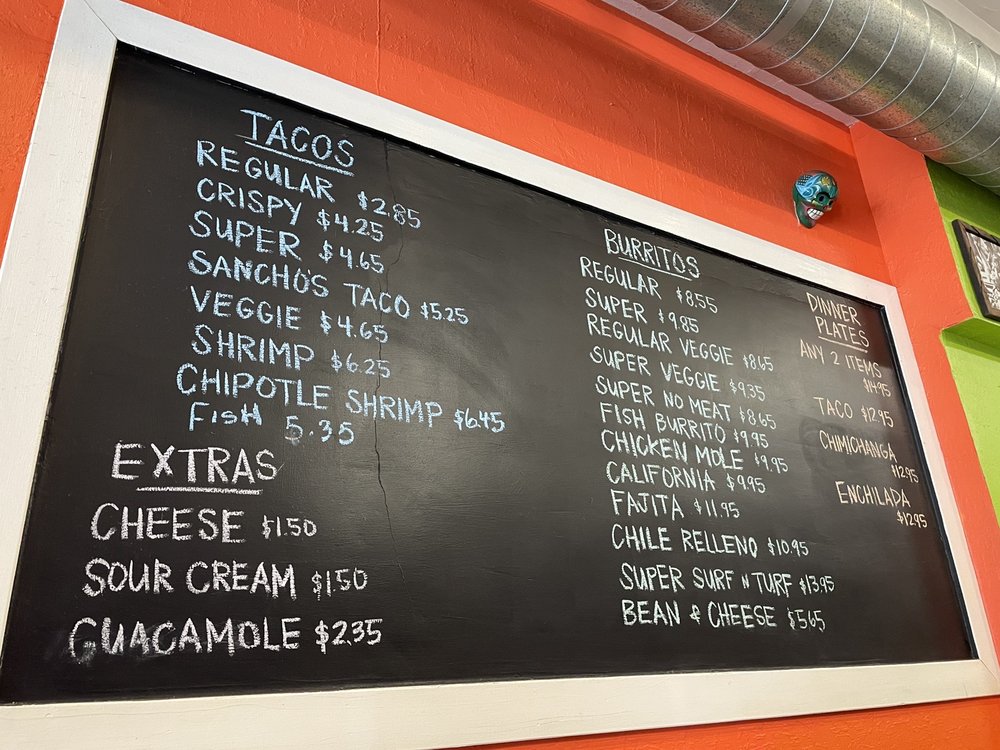 TACOS
REGULAR $2.85
CRISPY $4.25
SUPER $4.65
SANCHO'S TACO $5.25
VEGGIE $4.65
SHRIMP $6.25
CHIPOTLE SHRIMP $6.45
FISH 5.35
EXTRAS
CHEESE $1.50
SOUR CREAM $1.50
GUACAMOLE $2.35
BURRITOS
REGULAR $8.55
SUPER $9.85
REGULAR VEGGIE $8.65
SUPER VEGGIE $9.35
SUPER NO MEAT $8.65
FISH BURRITO $9.95
CHICKEN MOLE $9.95
CALIFORNIA $9.95
FAJITA $11.95
CHILE RELLENO $10.95
SUPER SURF N TURF $13.95
BEAN & CHEESE $5.65
DINNER
PLATES
ANY 2 ITEMS
$14.95
TACO $12.95
CHIMICHANGA
$12.95
ENCHILADA
$12.95